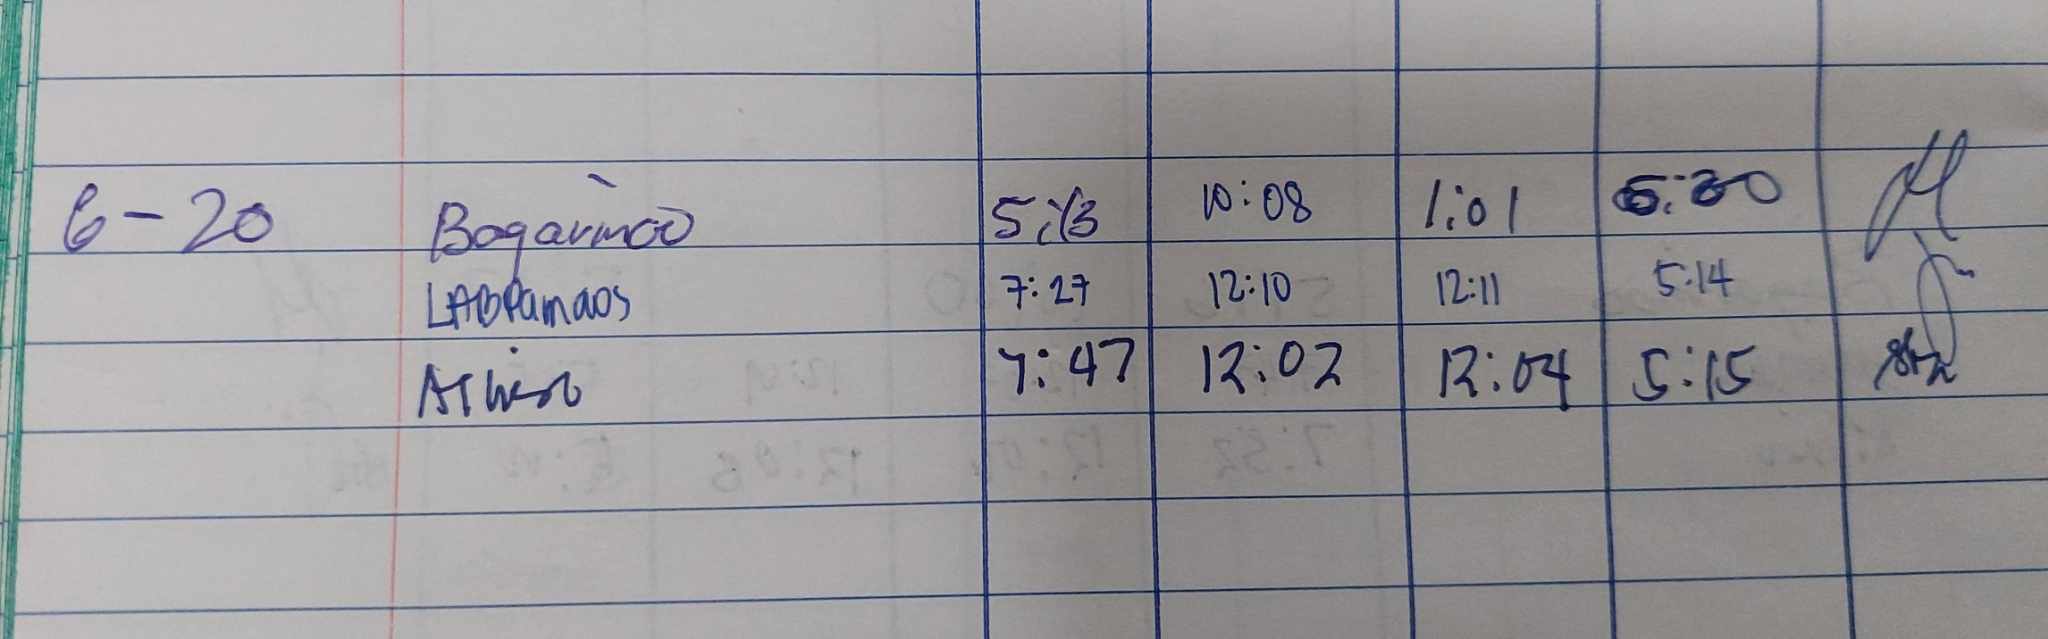 6-20 Bagarinao 5:13 10:08 1:01
LABRAMAOS 7:27 12:10 12:11 5:14
7:47 12:02 12:04 5:15